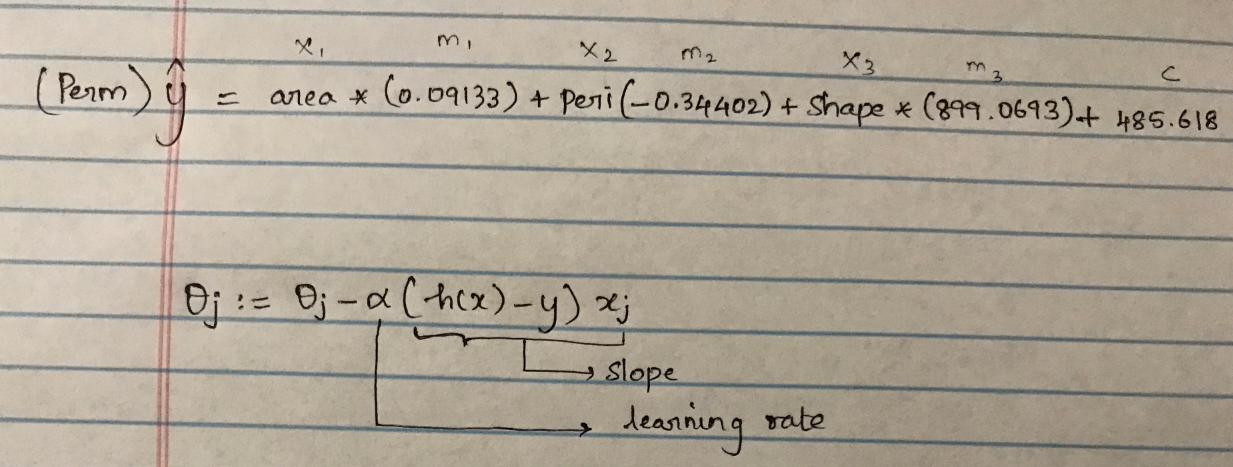 x₁ m₁ x₂ m₂ x₃ m₃ c
(Perm) ŷ = area * (0.09133) + peri(-0.34402) + Shape * (899.0693) + 485.618
θj := θj - α (h(x) - y) xj
→ slope
→ learning rate